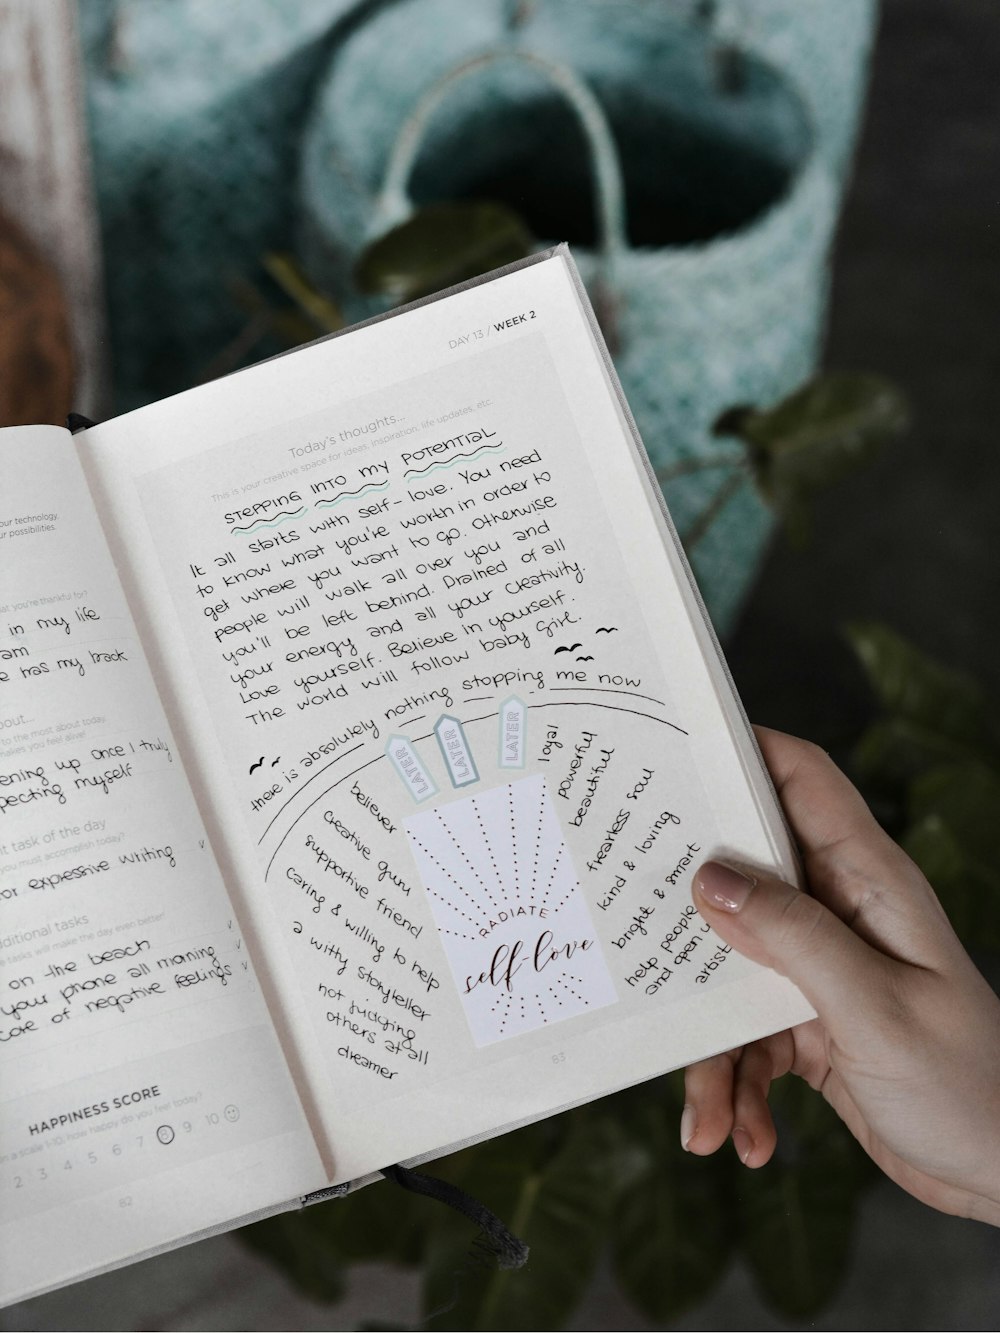 our technology,
ur possibilities.
at you're thankful for?
in my life
am
e has my back
bout...
to the most about today,
makes you feel alive!
ening up once I truly
pecting myself
it task of the day
you must accomplish today?
or expressive writing
ditional tasks
e tasks will make the day even better!
on the beach
your phone all morning
care of negative feelings
HAPPINESS SCORE
on a scale 1-10, how happy do you feel today?
2 3 4 5 6 7 8 9 10
82
DAY 13 / WEEK 2
Today's thoughts...
This is your creative space for ideas, inspiration, life updates, etc.
STEPPING INTO MY POTENTIAL
It all starts with self-love. You need
to know what you're worth in order to
get where you want to go. Otherwise
people will walk all over you and
you'll be left behind. Drained of all
your energy and all your creativity.
Love yourself. Believe in yourself.
The world will follow baby girl.
there is absolutely nothing stopping me now
LATER
LATER
LATER
believer
creative guru
supportive friend
caring & willing to help
a witty storyteller
not judging
others at all
dreamer
RADIATE
self-love
loyal
powerful
beautiful
fearless soul
kind & loving
bright & smart
help people
and open
artist
83